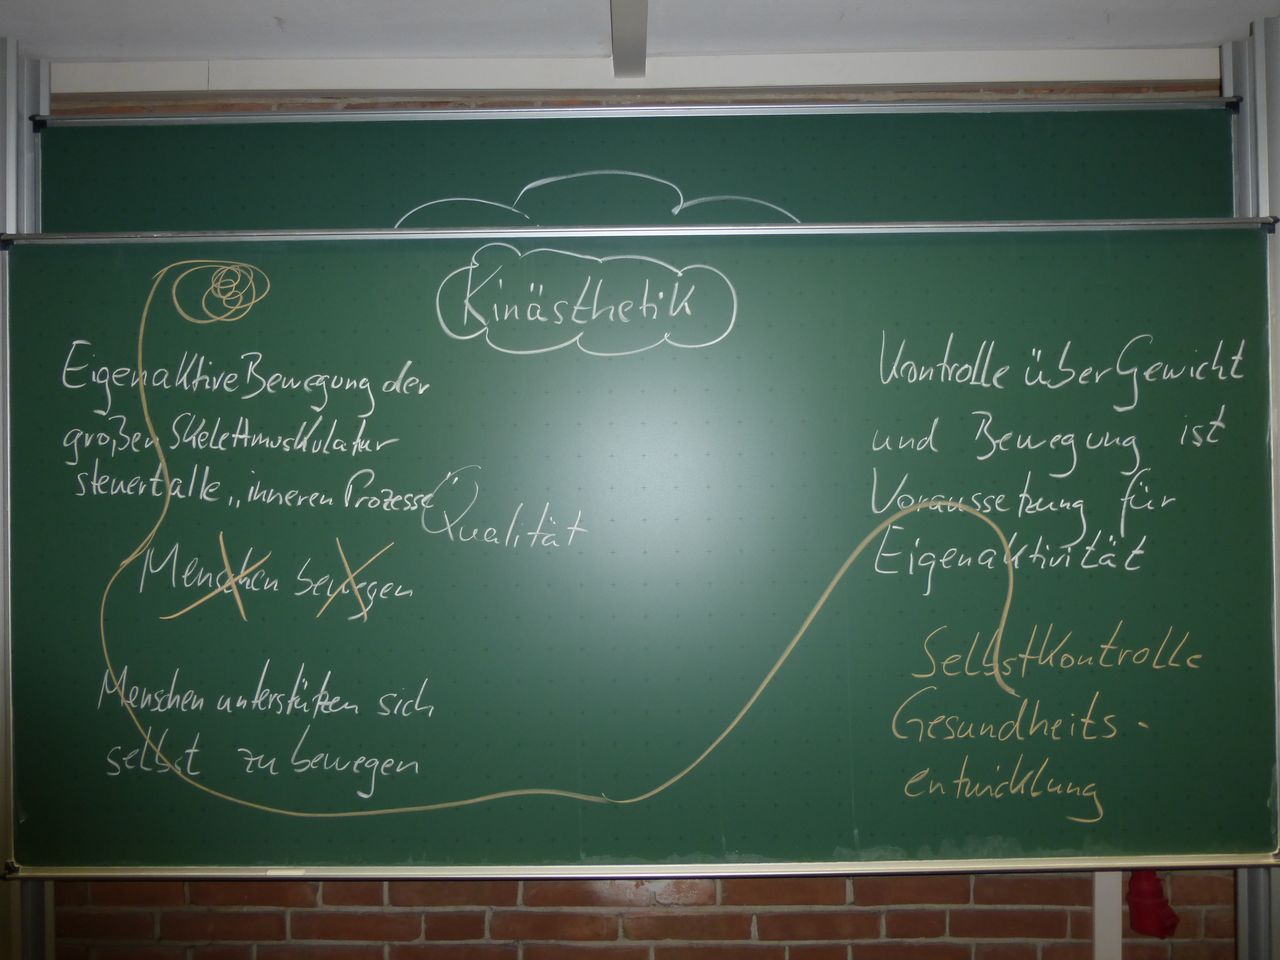 Kinästhetik
Eigenaktive Bewegung der
großen Skelettmuskulatur
steuert alle „inneren Prozesse
Qualität
Menschen bewegen
Menschen unterstützen sich
selbst zu bewegen
Kontrolle über Gewicht
und Bewegung ist
Voraussetzung für
Eigenaktivität
Selbstkontrolle
Gesundheits-
entwicklung